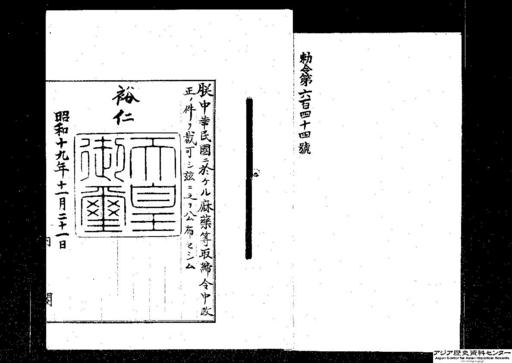 勅令第六百四十四號
朕中華民國ニ於ケル麻藥等取締令中改
正ノ件ヲ裁可シ茲ニ之ヲ公布セシム
裕仁
天皇
御璽
昭和十九年十一月二十一日
内閣
アジア歴史資料センター
Japan Center for Asian Historical Records